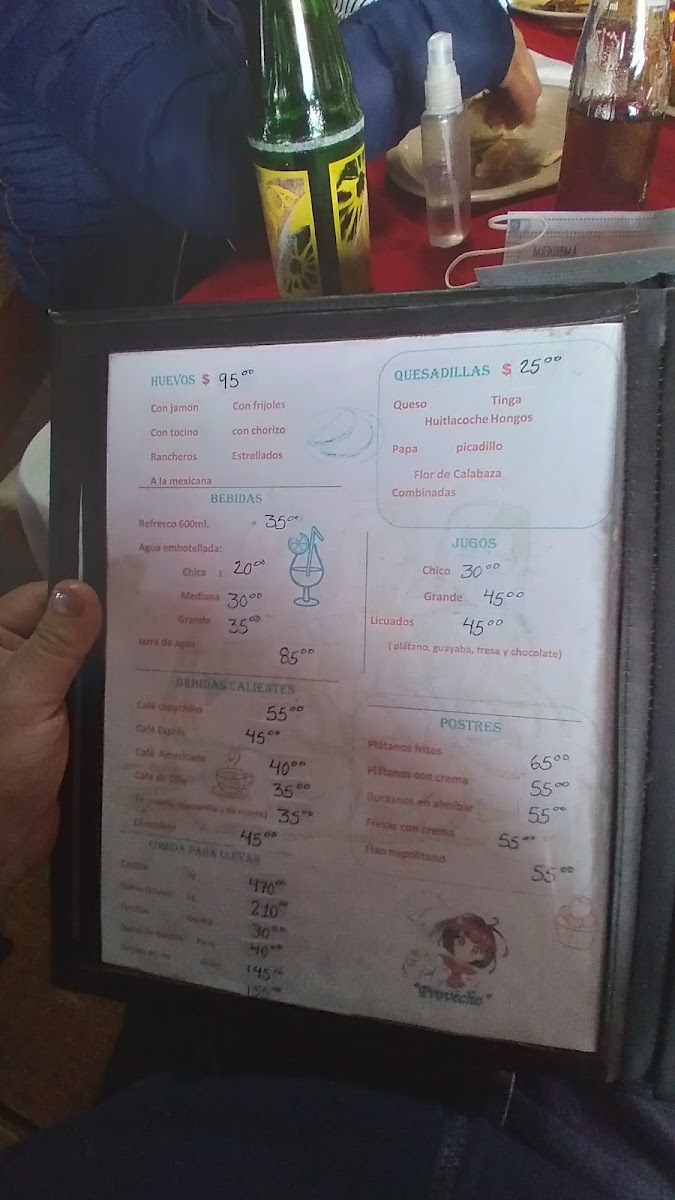 HUEVOS $ 95⁰⁰
Con jamon Con frijoles
Con tocino con chorizo
Rancheros Estrellados
A la mexicana
QUESADILLAS $ 25⁰⁰
Queso Tinga
Huitlacoche Hongos
Papa picadillo
Flor de Calabaza
Combinadas
BEBIDAS
Refresco 600ml. 35⁰⁰
Agua embotellada:
Chica : 20⁰⁰
Mediana 30⁰⁰
Grande 35⁰⁰
Jarra de agua 85⁰⁰
JUGOS
Chico 30⁰⁰
Grande 45⁰⁰
Licuados 45⁰⁰
( plátano, guayaba, fresa y chocolate)
BEBIDAS CALIENTES
Café capuchino 55⁰⁰
Café Exprés 45⁰⁰
Café Americano 40⁰⁰
Café de Olla 35⁰⁰
Té 35⁰⁰
Chocolate 45⁰⁰
POSTRES
Plátanos fritos 65⁰⁰
Plátanos con crema 55⁰⁰
Duraznos en almíbar 55⁰⁰
Fresas con crema 55⁰⁰
Flan napolitano 55⁰⁰
COMIDA PARA LLEVAR
470⁰⁰
210⁰⁰
30⁰⁰
40⁰⁰
145
155
"Provecho"